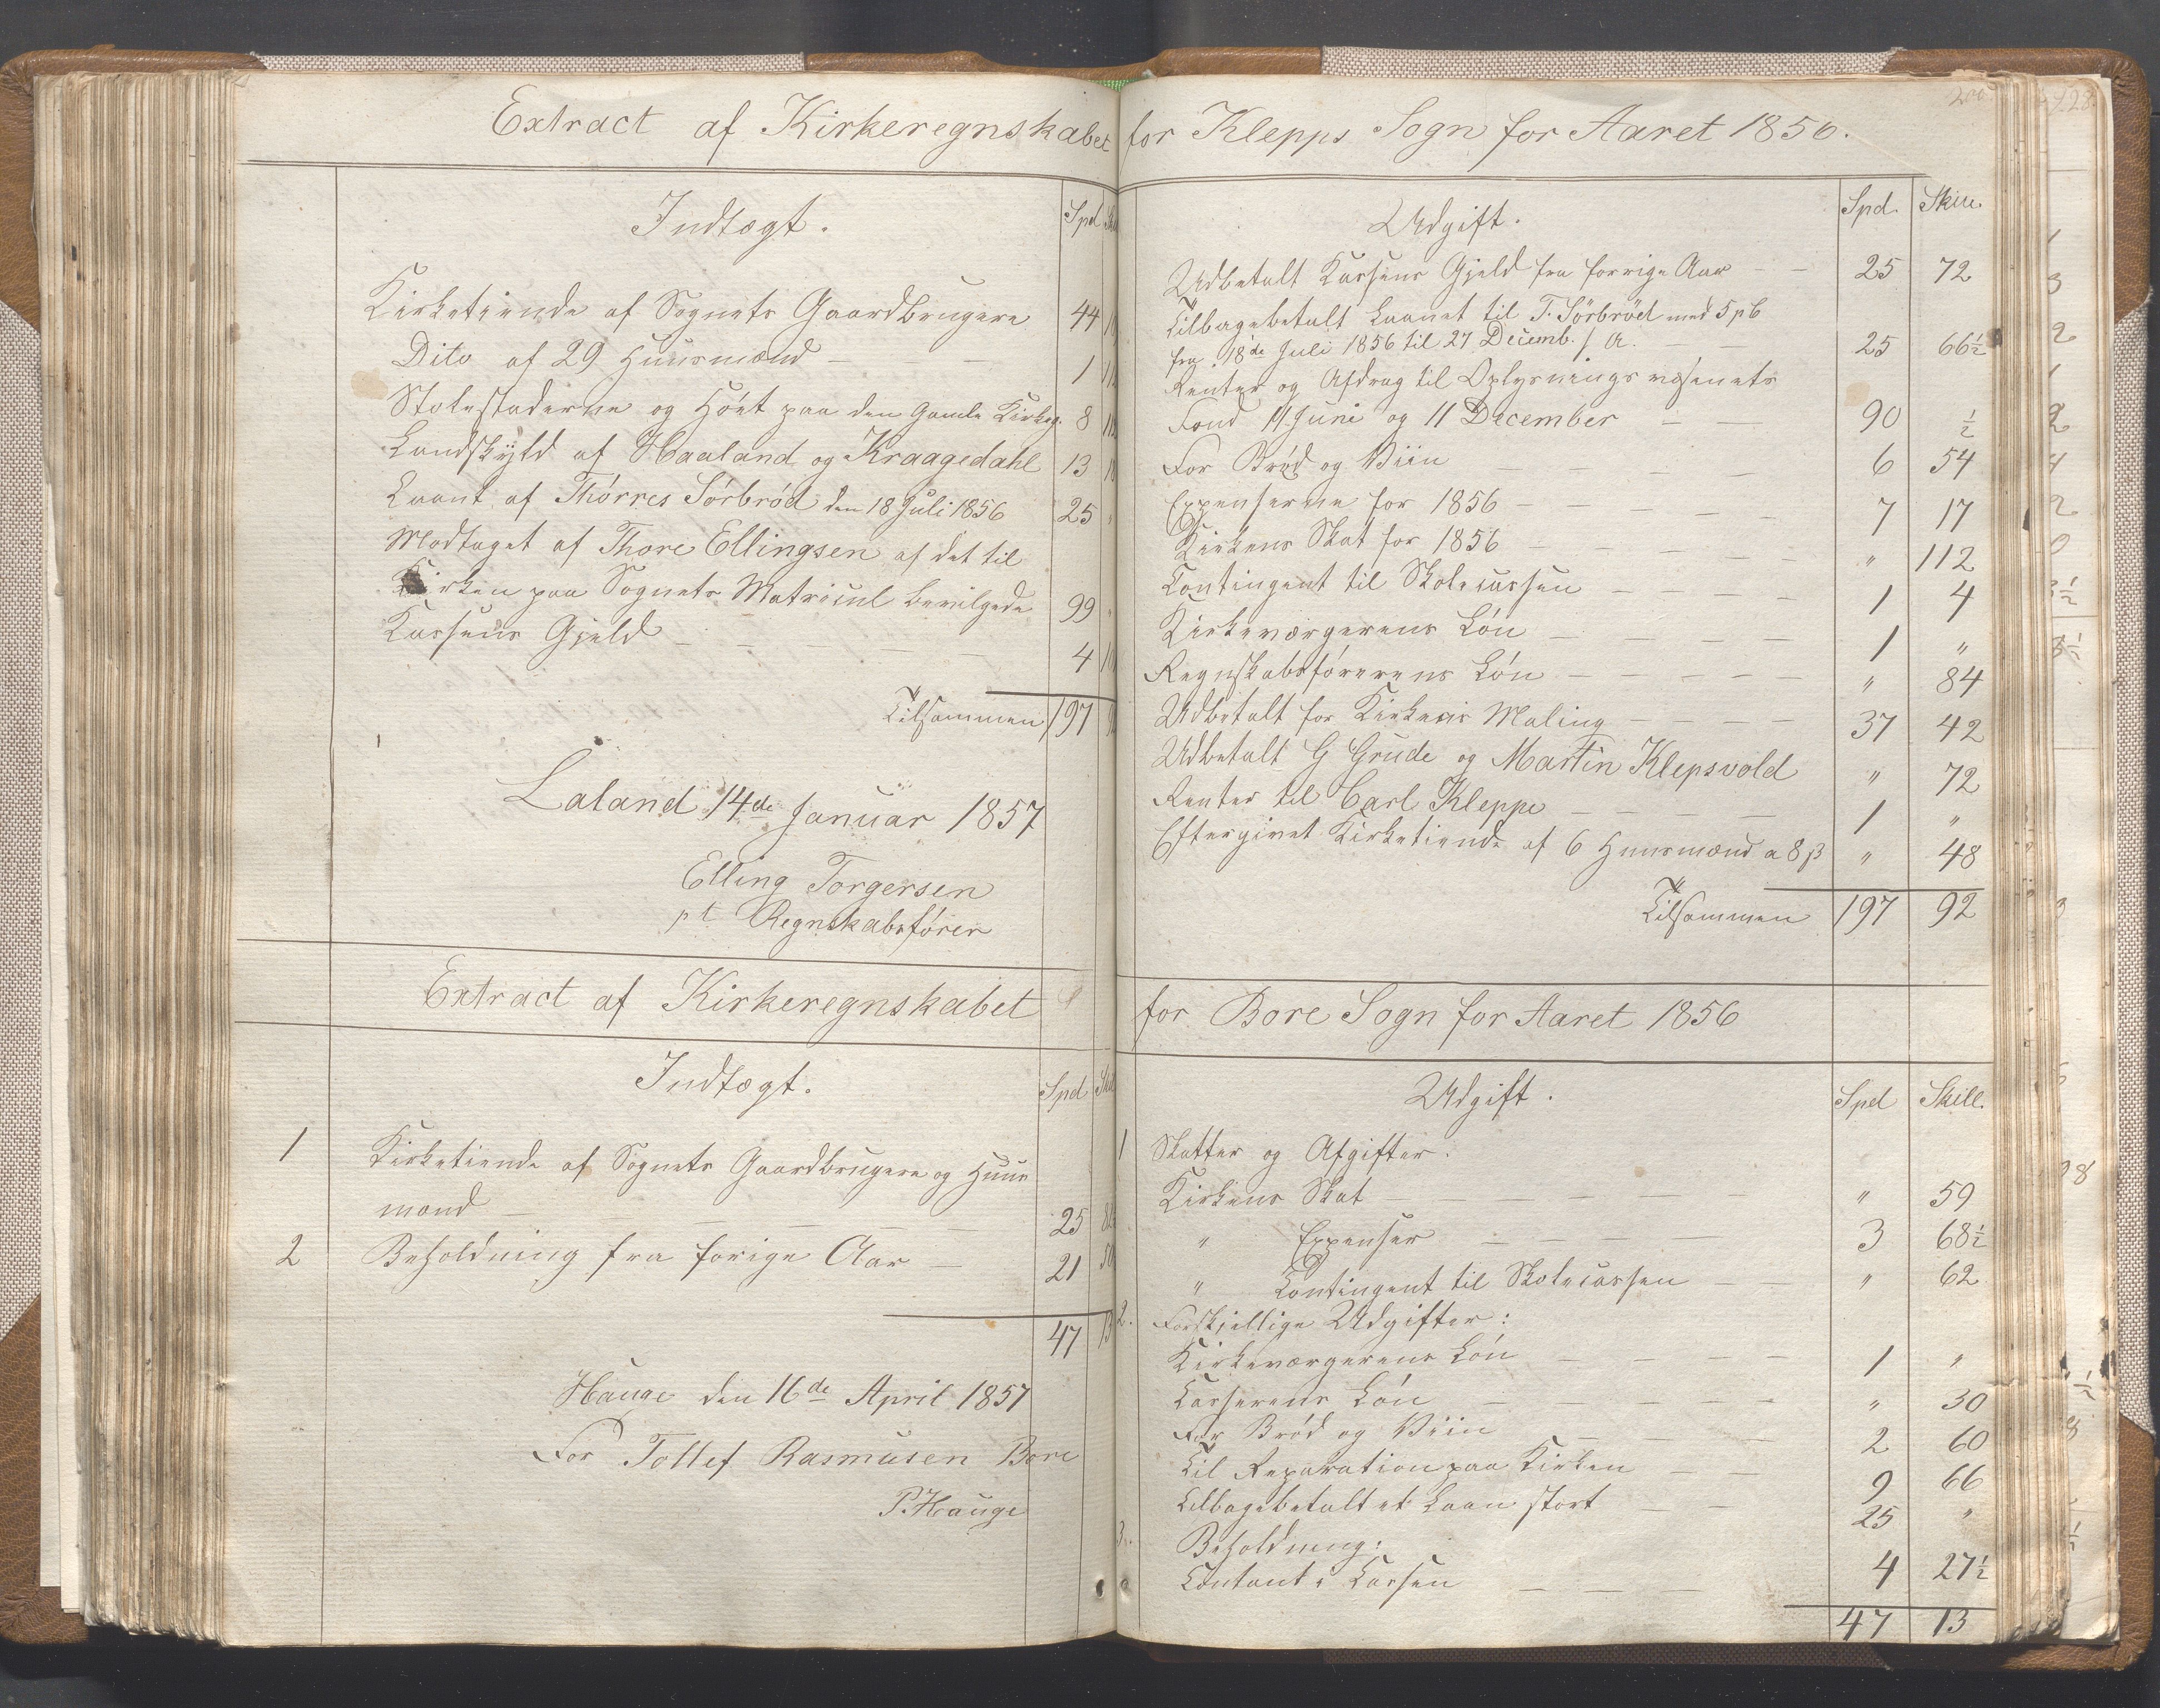 Extract af Kirkeregnskabet for Klepps Sogn for Aaret 1856.
Indtægt. Spd
Kirketiende af Sognets Gaardbrugere 44
Dito af 29 Huusmænd 1
Stolestaderne og Höet paa den Gamle Kirkeg. 8
Landskyld af Haaland og Kraagedahl 13
Laant af Thörres Sörbröd den 18 Juli 1856 25
Modtaget af Thore Ellingsen af det til
Kirken paa Sognets Matricul bevilgede 99
Kassens Gjeld 4
Tilsammen 197
Laland 14de Januar 1857
Elling Torgersen
pt Regnskabsförer
Udgift. Spd. Skill.
Udbetalt Kassens Gjeld fra forrige Aar 25 72
Tilbagebetalt Laanet til T. Sörbröd med 5 pC
fra 18de Juli 1856 til 27 Decemb. s. A. 25 66½
Renter og Afdrag til Oplysningsvæsenets
Fond 11 Juni og 11 December 90 ½
For Bröd og Viin 6 54
Expenserne for 1856 7 17
Kirkens Skat for 1856 " 112
Contingent til Skolecassen 1 4
Kirkeværgerens Lön 1 "
Regnskabsförerens Lön " 84
Udbetalt for Kirkens Maling 37 42
Udbetalt G Grude og Martin Klepsvold " 72
Renter til Carl Kleppe 1 "
Eftergivet Kirketiende af 6 Huusmænd a 8 β " 48
Tilsammen 197 92
Extract af Kirkeregnskabet for Bore Sogn for Aaret 1856
Indtægt. Spd
1 Kirketiende af Sognets Gaardbrugere og Huus
mænd 25
2 Beholdning fra forige Aar 21
47 13
Hauge den 16de April 1857
For Tollef Rasmusen Bore
P. Hauge
Udgift. Spd Skill.
1 Skatter og Afgifter.
Kirkens Skat " 59
" Expenser 3 68½
" Contingent til Skolecassen " 62
2. Forskjellige Udgifter:
Kirkeværgerens Lön 1 "
Casserens Lön " 30
For Bröd og Viin 2 60
Til Reparation paa Kirken 9 66
Tilbagebetalt et Laan stort 25 "
3. Beholdning:
Contant i Cassen 4 27½
47 13